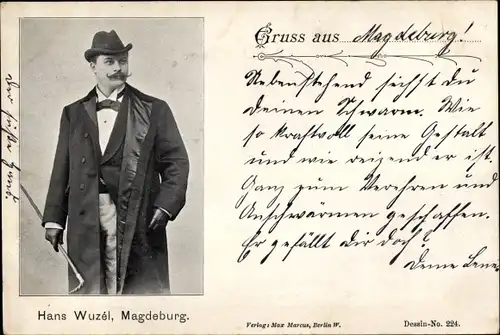 Gruss aus Magdeburg!
Nebenstehend siehst du
deinen Schwarm. Wie
so kraftvoll seine Gestalt
und wie reizend er ist.
Ganz zum Verehren und
Anschwärmen geschaffen.
Er gefällt dir doch?
Deine Lene
Hans Wuzél, Magdeburg.
Verlag: Max Marcus, Berlin W.
Dessin-No. 224.